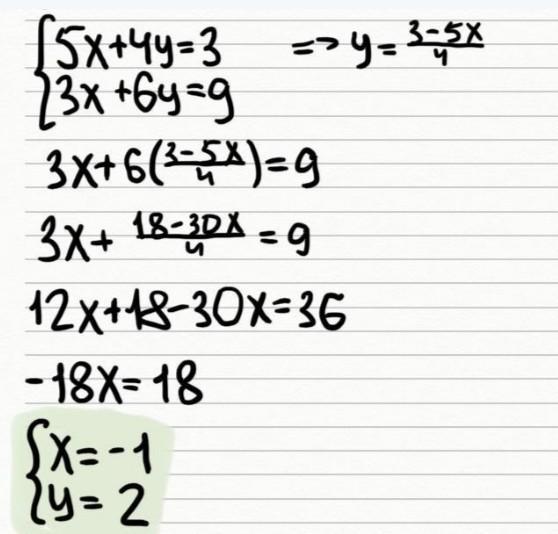 {5x+4y=3 => y=(3-5x)/4
{3x+6y=9
3x+6((3-5x)/4)=9
3x+(18-30x)/4=9
12x+18-30x=36
-18x=18
{x=-1
{y=2